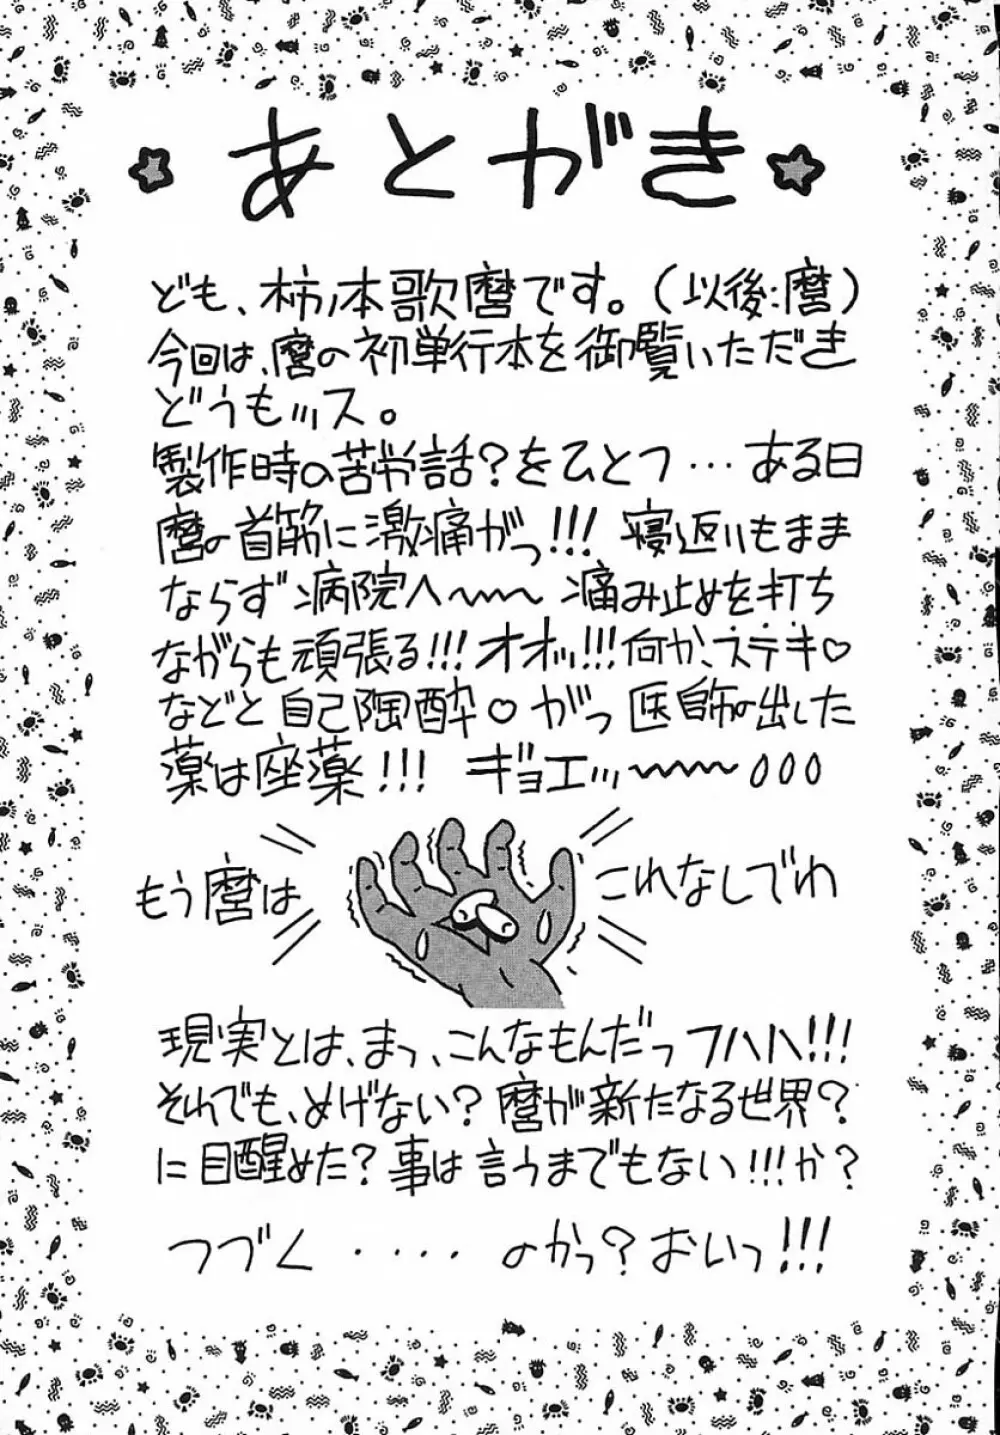 あとがき
ども、柿ノ本歌麿です。(以後:麿)
今回は、麿の初単行本を御覧いただき
どうもッス。
製作時の苦労話?をひとつ…ある日
麿の首筋に激痛がっ!!!寝返りもまま
ならず病院へ〜〜 痛み止めを打ち
ながらも頑張る!!!オオッ!!!何か、ステキ♡
などと自己陶酔♡がっ医師の出した
薬は座薬!!!ギョエッ〜〜〜
もう麿は
これなしでわ
現実とは、まっ、こんなもんだっフハハ!!!
それでも、めげない?麿が新たなる世界?
に目醒めた?事は言うまでもない!!!か?
つづく・・・・のかっ?おいっ!!!